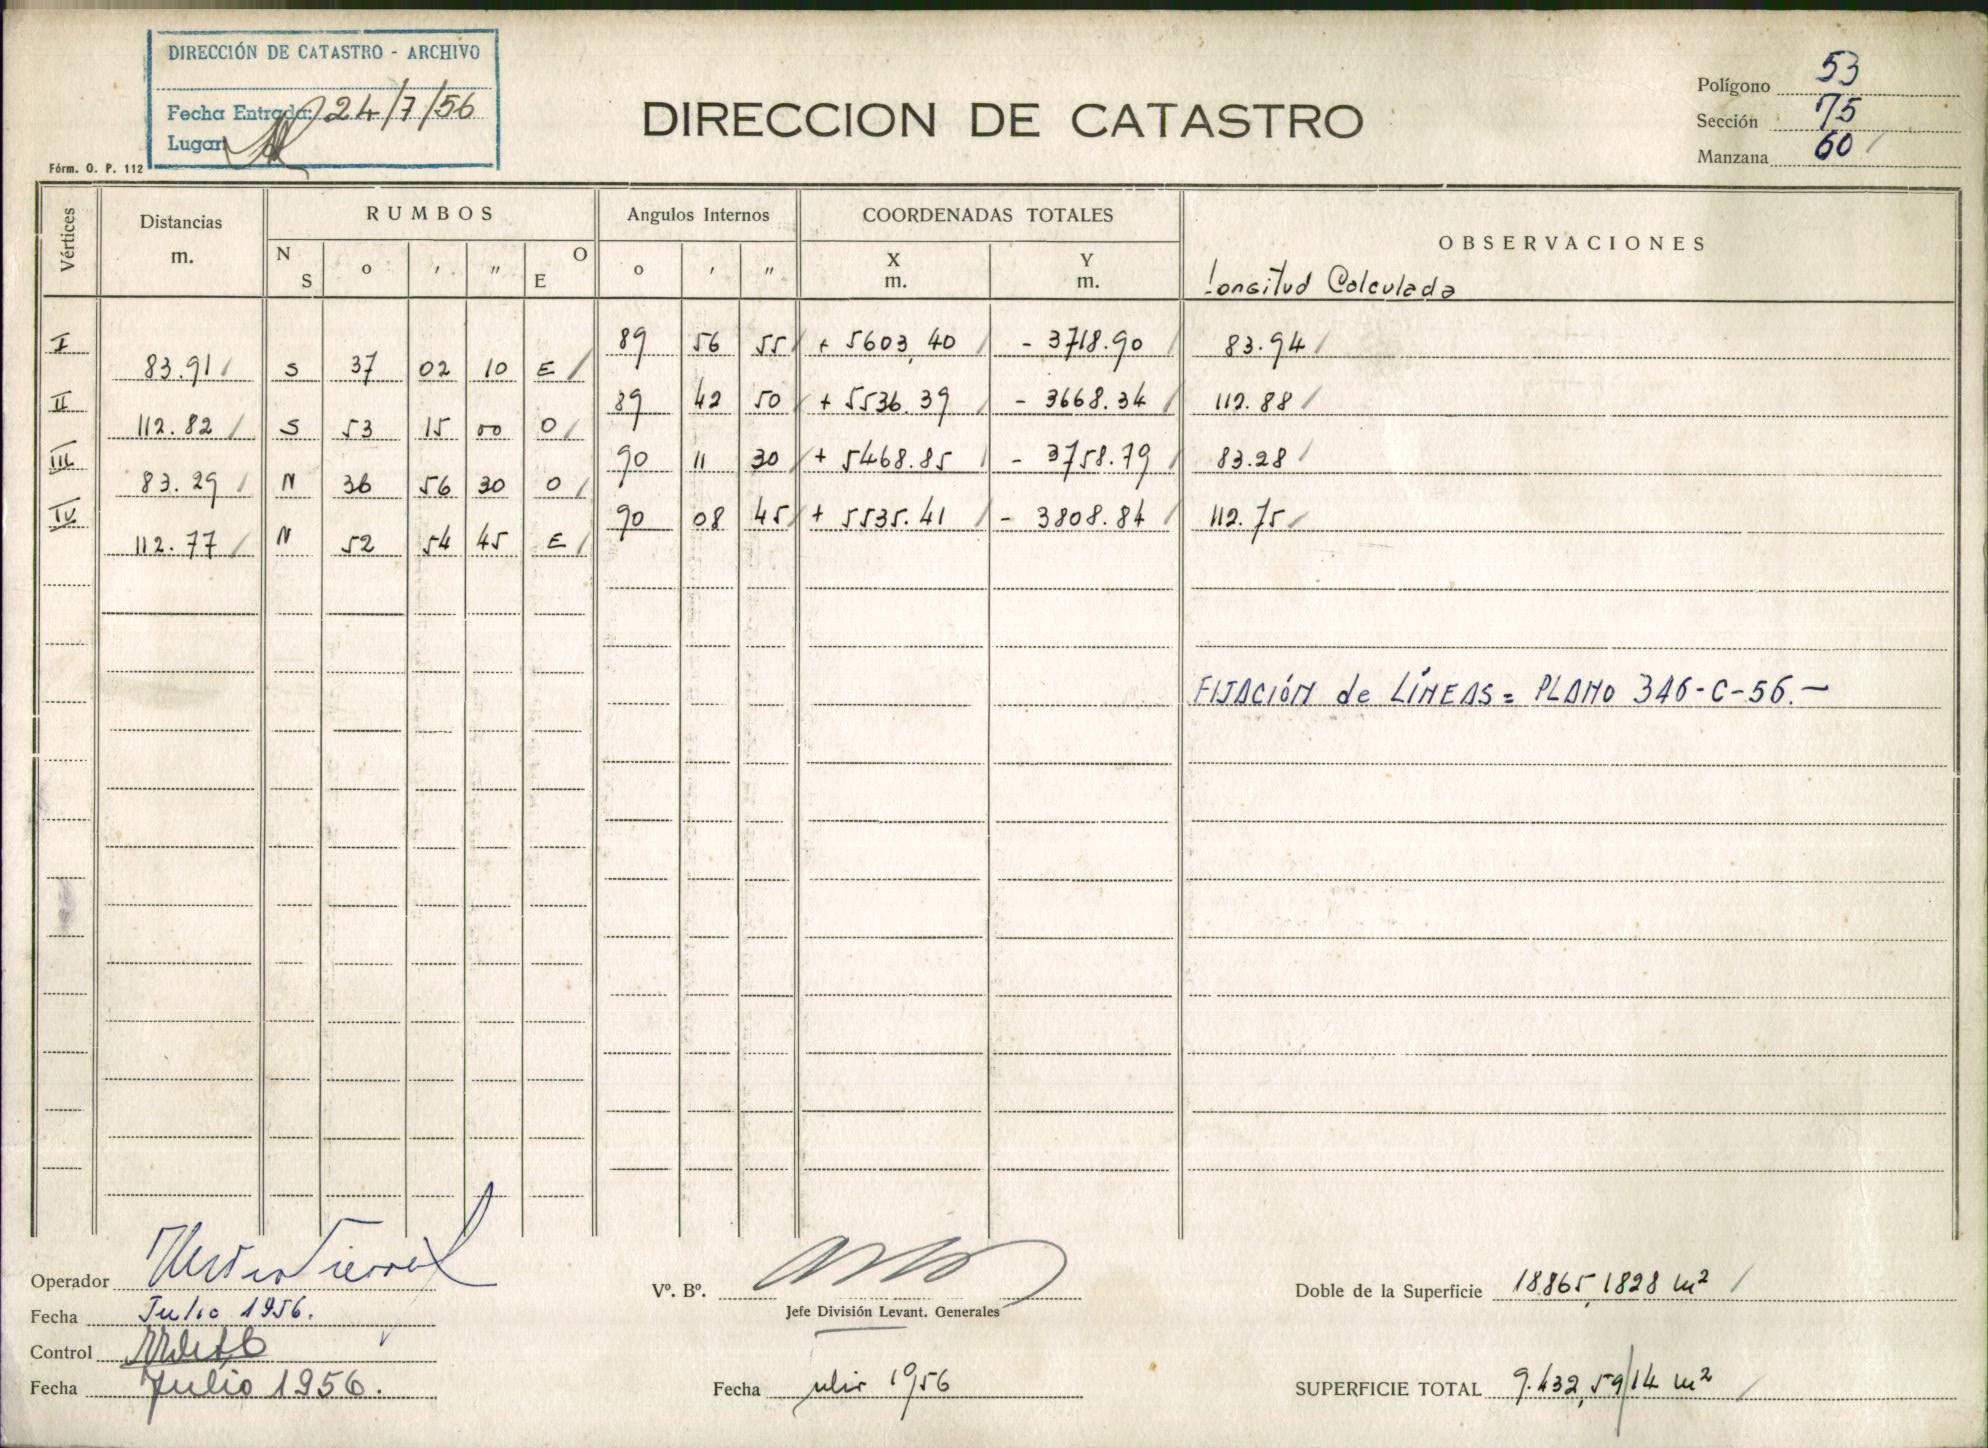 DIRECCIÓN DE CATASTRO - ARCHIVO
Fecha Entrada: 24/7/56
Lugar
Fórm. O. P. 112
DIRECCION DE CATASTRO
Polígono 53
Sección 75
Manzana 60
Vértices
Distancias m.
RUMBOS
N S o ' " O E
Angulos Internos
o ' "
COORDENADAS TOTALES
X m.
Y m.
OBSERVACIONES
Longitud Calculada
I 89 56 55 + 5603,40 - 3718.90 83.94
83.91 S 37 02 10 E
II 89 42 50 + 5536.39 - 3668.34 112.88
112.82 S 53 15 00 O
III 90 11 30 + 5468.85 - 3758.79 83.28
83.29 N 36 56 30 O
IV 90 08 45 + 5535.41 - 3808.84 112.75
112.77 N 52 54 45 E
FIJACIÓN de LÍNEAS = PLANO 346-C-56.-
Operador
Fecha Julio 1956.
Control
Fecha Julio 1956.
Vº. Bº.
Jefe División Levant. Generales
Fecha Julio 1956
Doble de la Superficie 18865,1828 m²
SUPERFICIE TOTAL 9.432,5914 m²